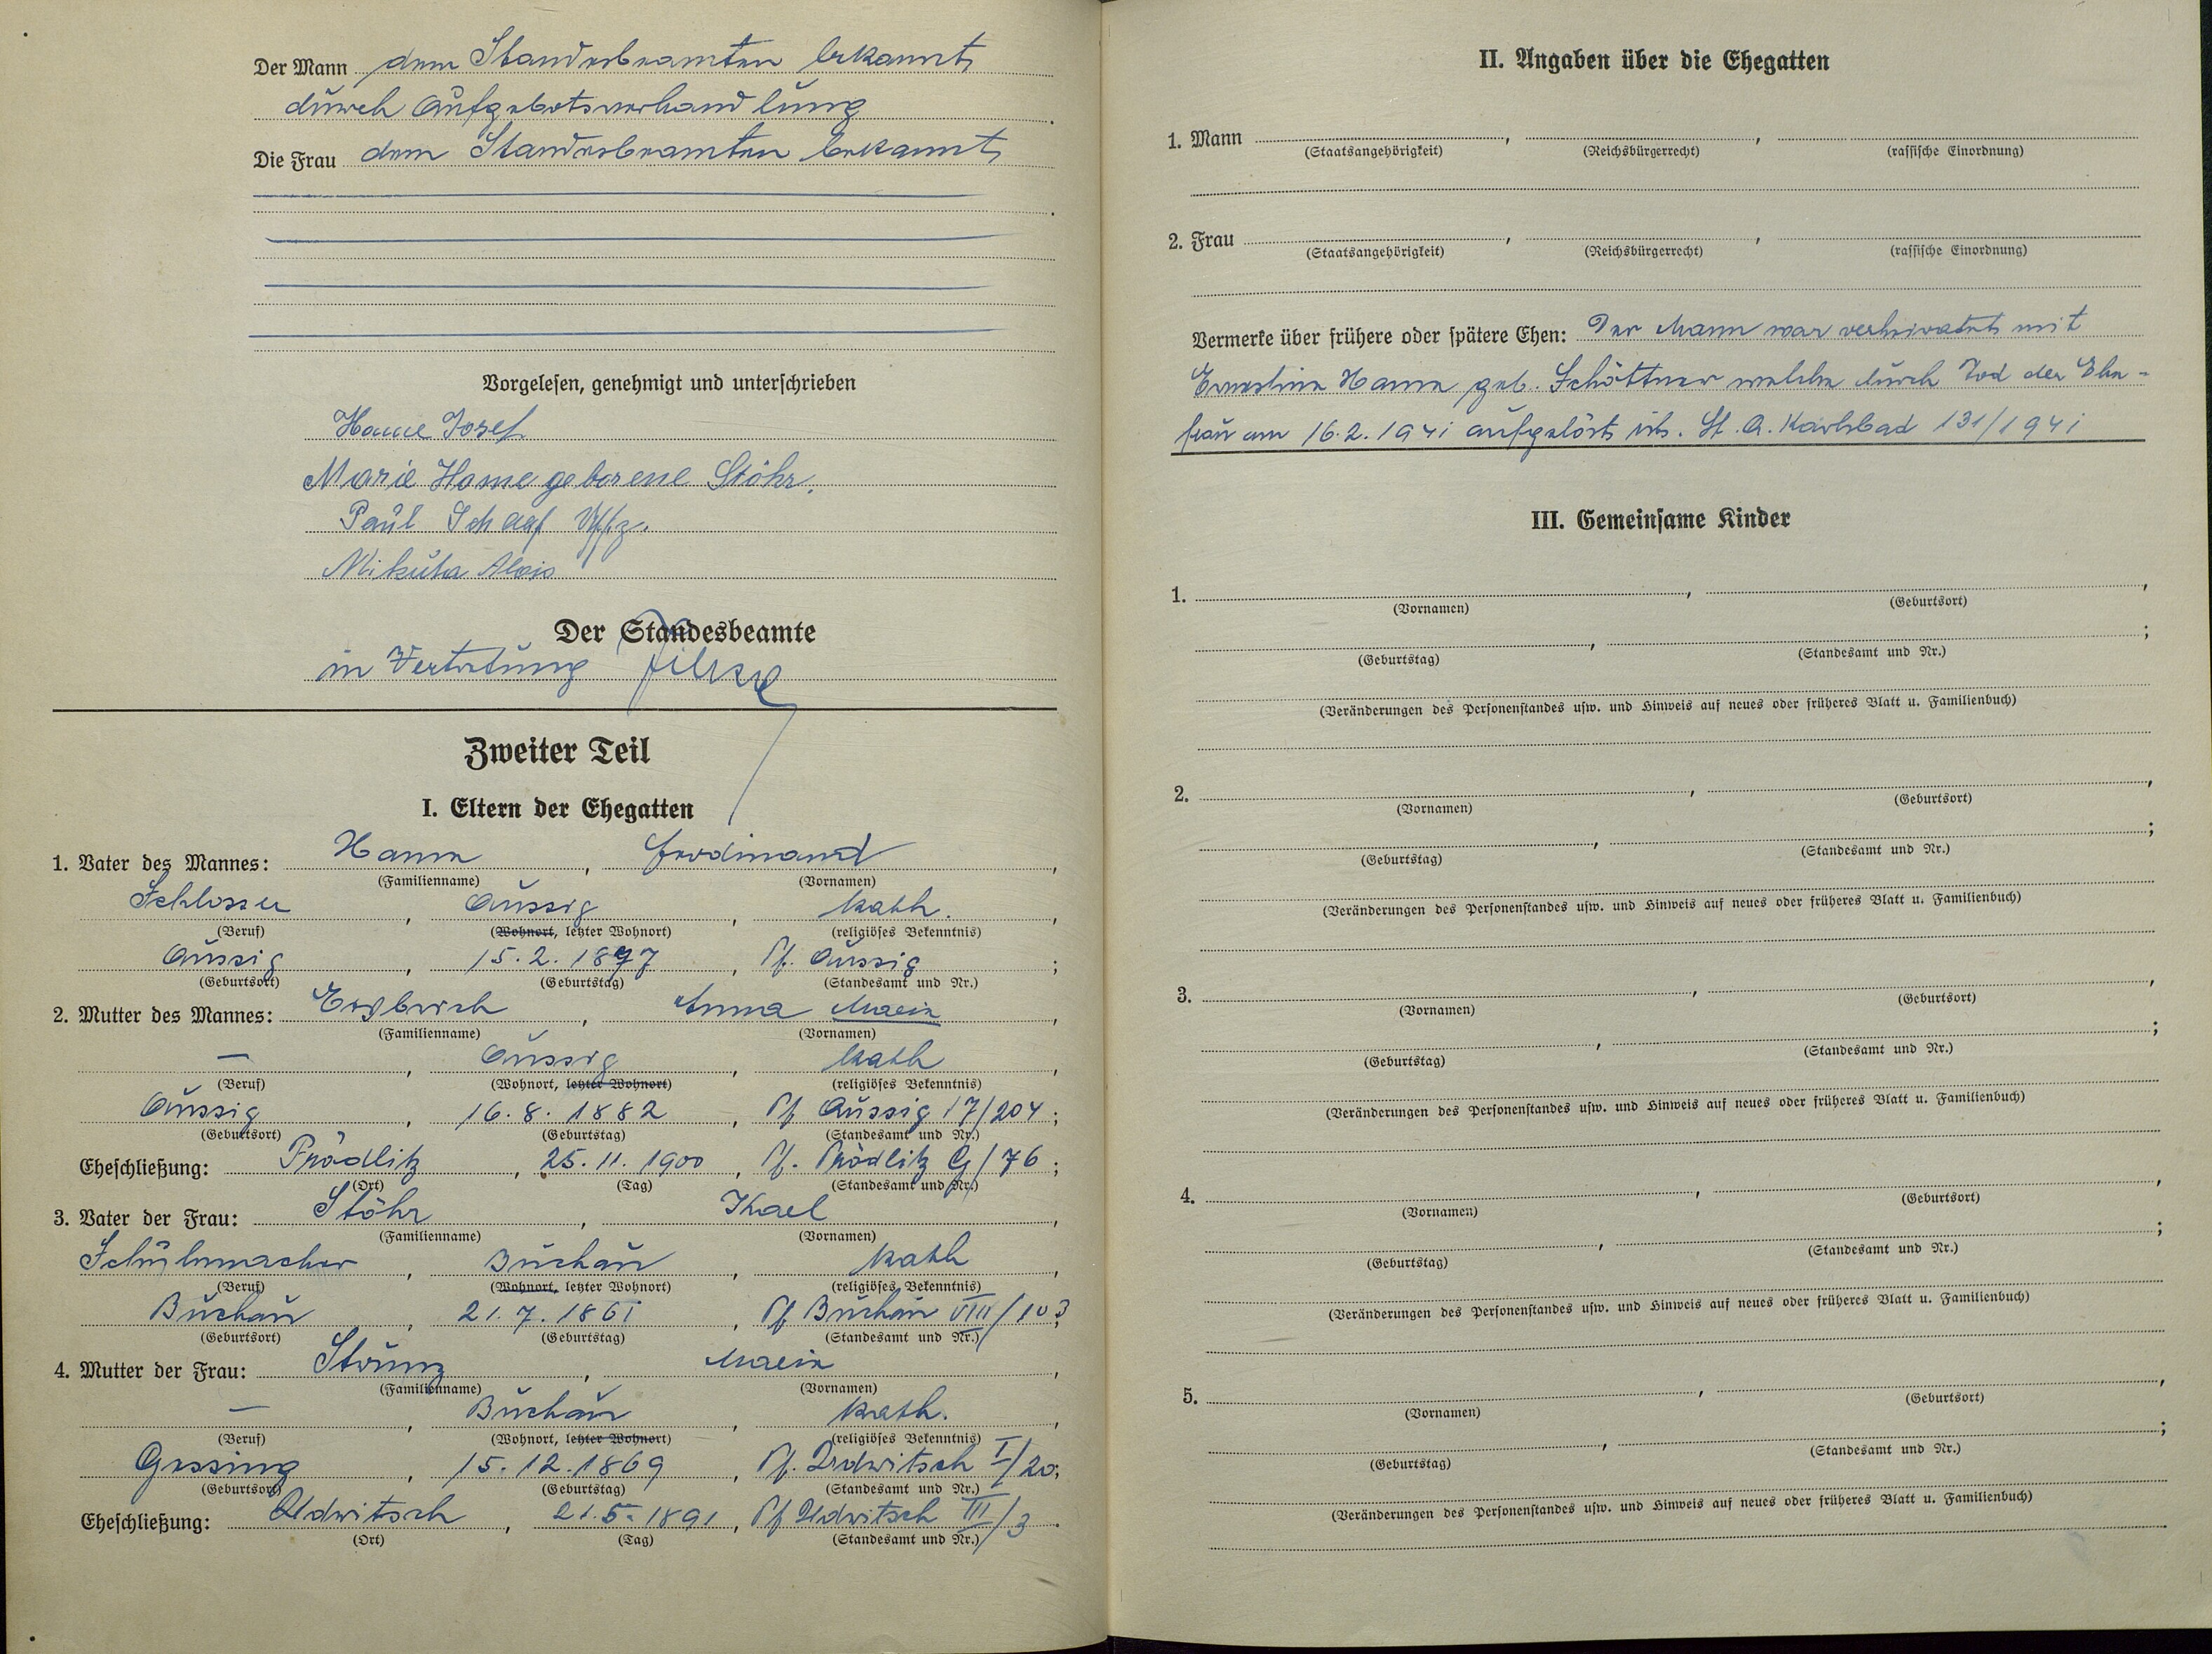 Der Mann dem Standesbeamten bekannt,
durch Aufgebotsverhandlung.
Die Frau dem Standesbeamten bekannt,
Vorgelesen, genehmigt und unterschrieben
Hame Josef
Marie Hame geborene Stöhr.
Paul Schaaf Uffz.
Mikuta Alois
Der Standesbeamte
in Vertretung
Zweiter Teil
I. Eltern der Ehegatten
1. Vater des Mannes: Hame, Ferdinand,
(Familienname) (Vornamen)
Schlosser, Aussig, kath.,
(Beruf) (Wohnort, letzter Wohnort) (religiöses Bekenntnis)
Aussig, 15.2.1877, Pf. Aussig;
(Geburtsort) (Geburtstag) (Standesamt und Nr.)
2. Mutter des Mannes: Anna Marie,
(Familienname) (Vornamen)
—, Aussig, kath,
(Beruf) (Wohnort, letzter Wohnort) (religiöses Bekenntnis)
Aussig, 16.8.1882, Pf Aussig 17/204;
(Geburtsort) (Geburtstag) (Standesamt und Nr.)
Eheschließung: Prödlitz, 25.11.1900, Pf. Prödlitz G/76;
(Ort) (Tag) (Standesamt und Nr.)
3. Vater der Frau: Stöhr, Karl,
(Familienname) (Vornamen)
Schuhmacher, Buchau, kath,
(Beruf) (Wohnort, letzter Wohnort) (religiöses Bekenntnis)
Buchau, 21.7.1861, Pf Buchau VIII/103;
(Geburtsort) (Geburtstag) (Standesamt und Nr.)
4. Mutter der Frau: Strunz, Marie,
(Familienname) (Vornamen)
—, Buchau, kath.,
(Beruf) (Wohnort, letzter Wohnort) (religiöses Bekenntnis)
Gessing, 15.12.1869, Pf. Udwitsch I/20;
(Geburtsort) (Geburtstag) (Standesamt und Nr.)
Eheschließung: Udwitsch, 21.5.1891, Pf Udwitsch III/3.
(Ort) (Tag) (Standesamt und Nr.)
II. Angaben über die Ehegatten
1. Mann , ,
(Staatsangehörigkeit) (Reichsbürgerrecht) (rassische Einordnung)
2. Frau , ,
(Staatsangehörigkeit) (Reichsbürgerrecht) (rassische Einordnung)
Vermerke über frühere oder spätere Ehen: Der Mann war verheiratet mit
Ernestine Hame geb. Schöttner welche durch Tod der Ehe-
frau am 16.2.1941 aufgelöst ist. St. A. Karlsbad 131/1941
III. Gemeinsame Kinder
1. , ,
(Vornamen) (Geburtsort)
, ;
(Geburtstag) (Standesamt und Nr.)
(Veränderungen des Personenstandes usw. und Hinweis auf neues oder früheres Blatt u. Familienbuch)
2. , ,
(Vornamen) (Geburtsort)
, ;
(Geburtstag) (Standesamt und Nr.)
(Veränderungen des Personenstandes usw. und Hinweis auf neues oder früheres Blatt u. Familienbuch)
3. , ,
(Vornamen) (Geburtsort)
, ;
(Geburtstag) (Standesamt und Nr.)
(Veränderungen des Personenstandes usw. und Hinweis auf neues oder früheres Blatt u. Familienbuch)
4. , ,
(Vornamen) (Geburtsort)
, ;
(Geburtstag) (Standesamt und Nr.)
(Veränderungen des Personenstandes usw. und Hinweis auf neues oder früheres Blatt u. Familienbuch)
5. , ,
(Vornamen) (Geburtsort)
, ;
(Geburtstag) (Standesamt und Nr.)
(Veränderungen des Personenstandes usw. und Hinweis auf neues oder früheres Blatt u. Familienbuch)